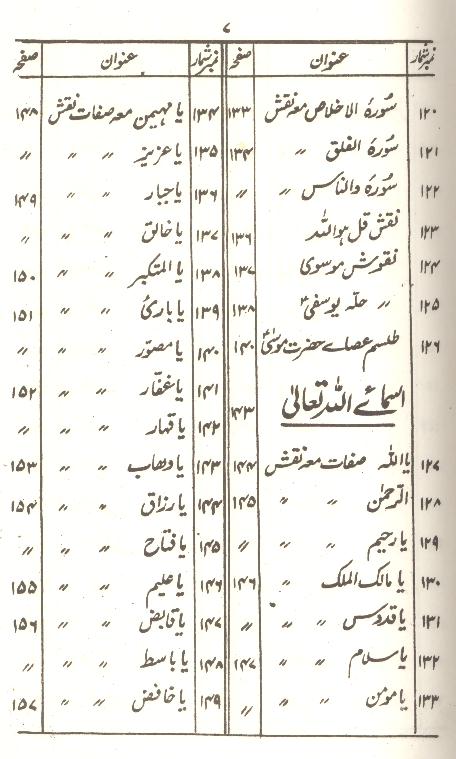 ۷
نمبر شمار عنوان صفحہ
۱۲۰ سُورۂ الاخلاص معہ نقش ۱۳۳
۱۲۱ سُورۂ الفلق ״ ۱۳۴
۱۲۲ سُورۂ والناس ״ ״ ״
۱۲۳ نقش قل ہو اللہ ۱۳۶
۱۲۴ نقوش موسوی ۱۳۷
۱۲۵ ״ حلہ یوسفی ۱۳۸
۱۲۶ طلسم عصائے حضرت موسیٰ ۱۴۰
اسمائے اللہ تعالیٰ ۱۴۳
۱۲۷ یا اللہ صفات معہ نقش ۱۴۴
۱۲۸ الرحمٰن ״ ״ ۱۴۵
۱۲۹ یا رحیم ״ ״ ״
۱۳۰ یا مالک الملک ״ ۱۴۶
۱۳۱ یا قدوس ״ ״ ״
۱۳۲ یا سلام ״ ״ ۱۴۷
۱۳۳ یا مومن ״ ״ ״
نمبر شمار عنوان صفحہ
۱۳۴ یا مہیمن معہ صفات نقش ۱۴۸
۱۳۵ یا عزیز ״ ״ ״
۱۳۶ یا جبار ״ ״ ۱۴۹
۱۳۷ یا خالق ״ ״ ״
۱۳۸ یا المتکبر ״ ״ ۱۵۰
۱۳۹ یا باریُ ״ ״ ۱۵۱
۱۴۰ یا مصوّر ״ ״ ״
۱۴۱ یا غفّار ״ ״ ۱۵۲
۱۴۲ یا قہار ״ ״ ״
۱۴۳ یا وہاب ״ ״ ۱۵۳
۱۴۴ یا رزاق ״ ״ ۱۵۴
۱۴۵ یا فتاح ״ ״ ״
۱۴۶ یا علیم ״ ״ ۱۵۵
۱۴۷ یا قابض ״ ״ ۱۵۶
۱۴۸ یا باسط ״ ״ ״
۱۴۹ یا خافض ״ ״ ۱۵۷